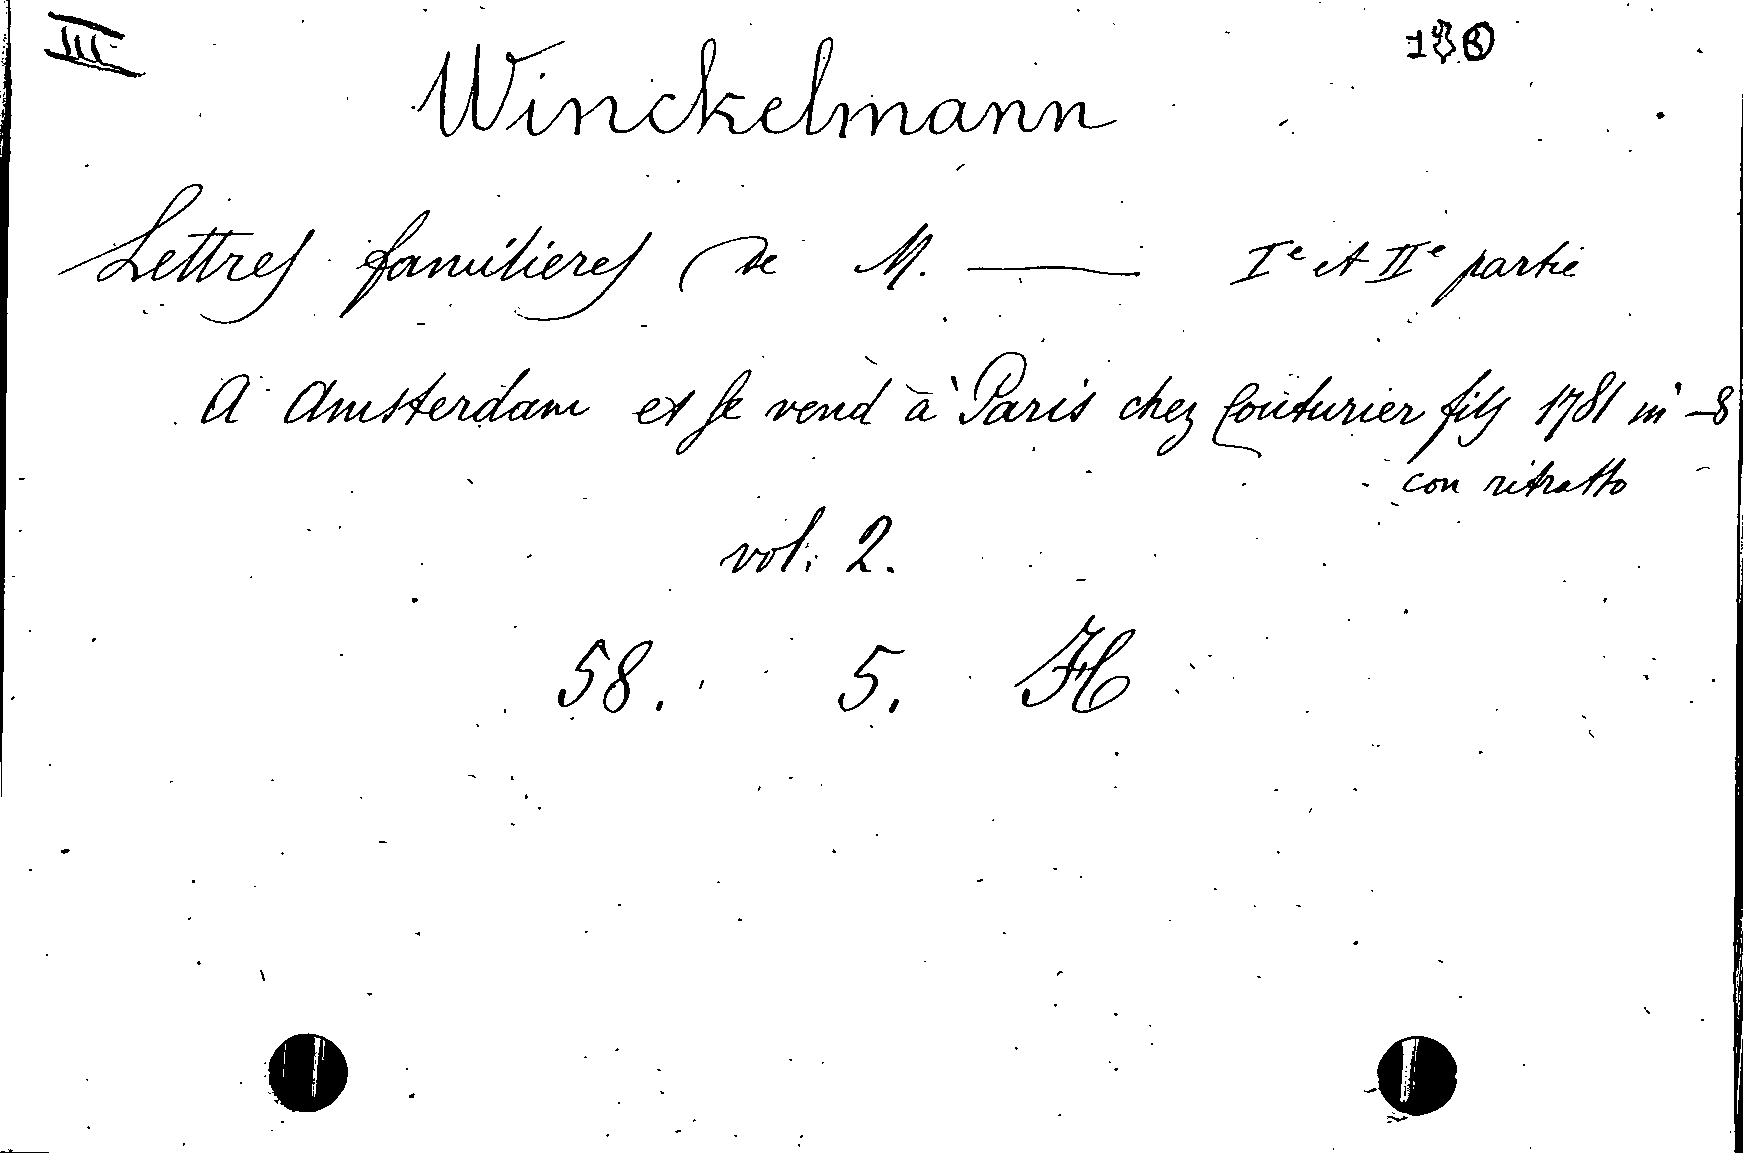 III
Winckelmann
Lettres familieres de M. —— Iᵉ et IIᵉ partie
A Amsterdam et se vend à Paris chez Couturier fils 1781 in-8
con ritratto
vol: 2.
58. 5. H